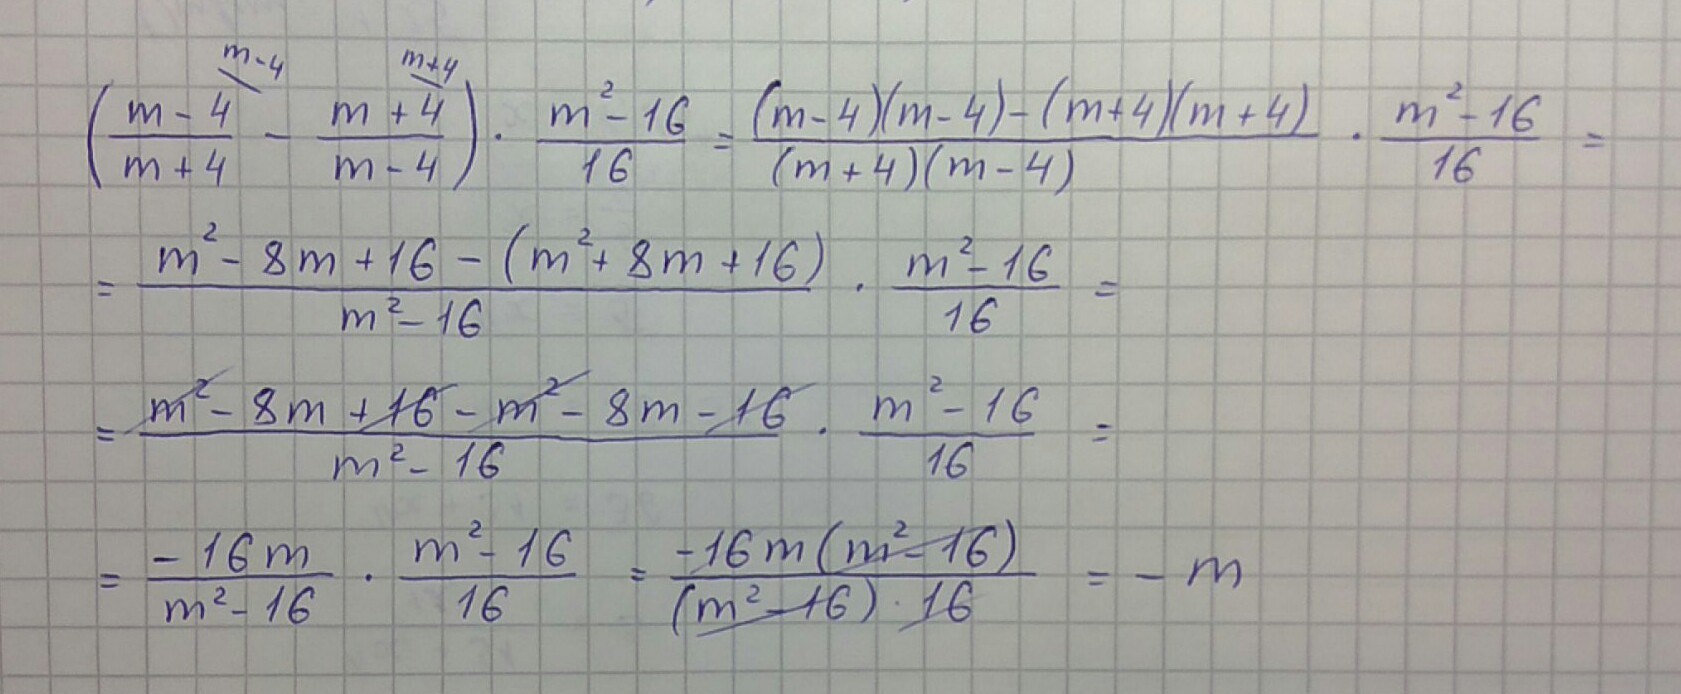 (m-4/m+4 - m+4/m-4) · m²-16/16 = (m-4)(m-4)-(m+4)(m+4)/(m+4)(m-4) · m²-16/16 =
= m²-8m+16-(m²+8m+16)/m²-16 · m²-16/16 =
= m²-8m+16-m²-8m-16/m²-16 · m²-16/16 =
= -16m/m²-16 · m²-16/16 = -16m(m²-16)/(m²-16)·16 = -m